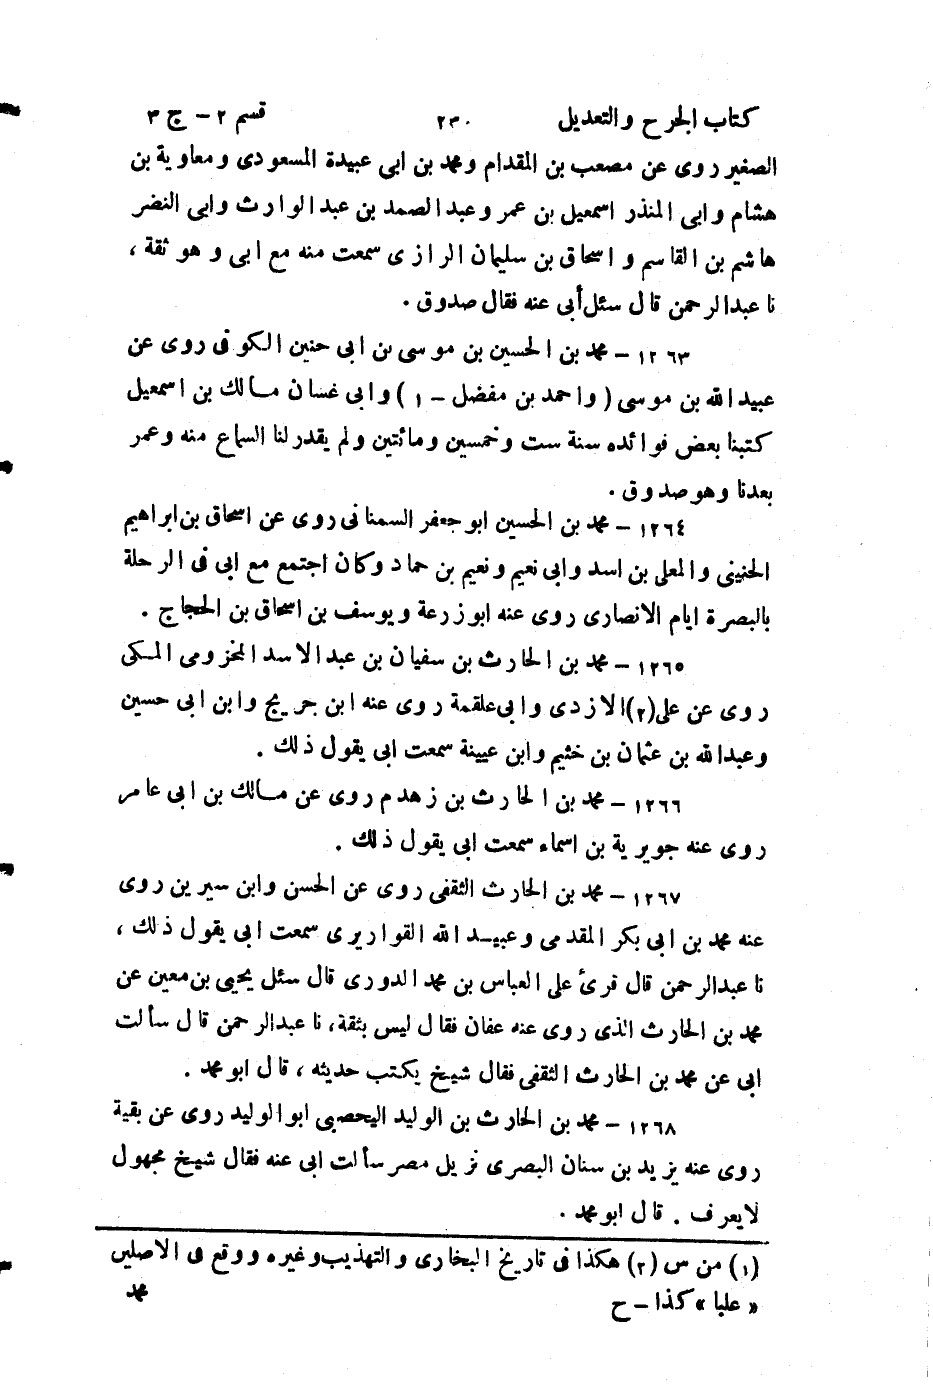 كتاب الجرح والتعديل ٢٣٠ قسم ٢ - ج ٣
الصغير روى عن مصعب بن المقدام ومحمد بن ابى عبيدة المسعودى ومعاوية بن
هشام وابى المنذر اسمعيل بن عمر وعبد الصمد بن عبد الوارث وابى النضر
هاشم بن القاسم واسحاق بن سليمان الرازى سمعت منه مع ابى وهو ثقة ،
نا عبدالرحمن قال سئل أبى عنه فقال صدوق .
١٢٦٣ - محمد بن الحسين بن موسى بن ابى حنين الكوفى روى عن
عبيد الله بن موسى ( واحمد بن مفضل - ١ ) وابى غسان مالك بن اسمعيل
كتبنا بعض فوائده سنة ست وخمسين ومائتين ولم يقدر لنا السماع منه وعمر
بعدنا وهو صدوق .
١٢٦٤ - محمد بن الحسين ابو جعفر السمنانى روى عن اسحاق بن ابراهيم
الحنينى والمعلى بن اسد وابى نعيم ونعيم بن حماد وكان اجتمع مع ابى فى الرحلة
بالبصرة ايام الانصارى روى عنه ابو زرعة ويوسف بن اسحاق بن الحجاج .
١٢٦٥ - محمد بن الحارث بن سفيان بن عبد الاسد المخزومى المكى
روى عن على(٢)الازدى وابى علقمة روى عنه ابن جريج وابن ابى حسين
وعبدالله بن عثمان بن خثيم وابن عيينة سمعت ابى يقول ذلك .
١٢٦٦ - محمد بن الحارث بن زهدم روى عن مالك بن ابى عامر
روى عنه جويرية بن اسماء سمعت ابى يقول ذلك .
١٢٦٧ - محمد بن الحارث الثقفى روى عن الحسن وابن سيرين روى
عنه محمد بن ابى بكر المقدمى وعبيد الله القواريرى سمعت ابى يقول ذلك ،
نا عبدالرحمن قال قرئ على العباس بن محمد الدورى قال سئل يحيى بن معين عن
محمد بن الحارث الذى روى عنه عفان فقال ليس بثقة، نا عبدالرحمن قال سألت
ابى عن محمد بن الحارث الثقفى فقال شيخ يكتب حديثه ، قال ابو محمد .
١٢٦٨ - محمد بن الحارث بن الوليد اليحصبى ابو الوليد روى عن بقية
روى عنه يزيد بن سنان البصرى نزيل مصر سألت ابى عنه فقال شيخ مجهول
لا يعرف . قال ابو محمد .
(١) من س (٢) هكذا فى تاريخ البخارى والتهذيب وغيره ووقع فى الاصلين
« عليا » كذا - ح محمد